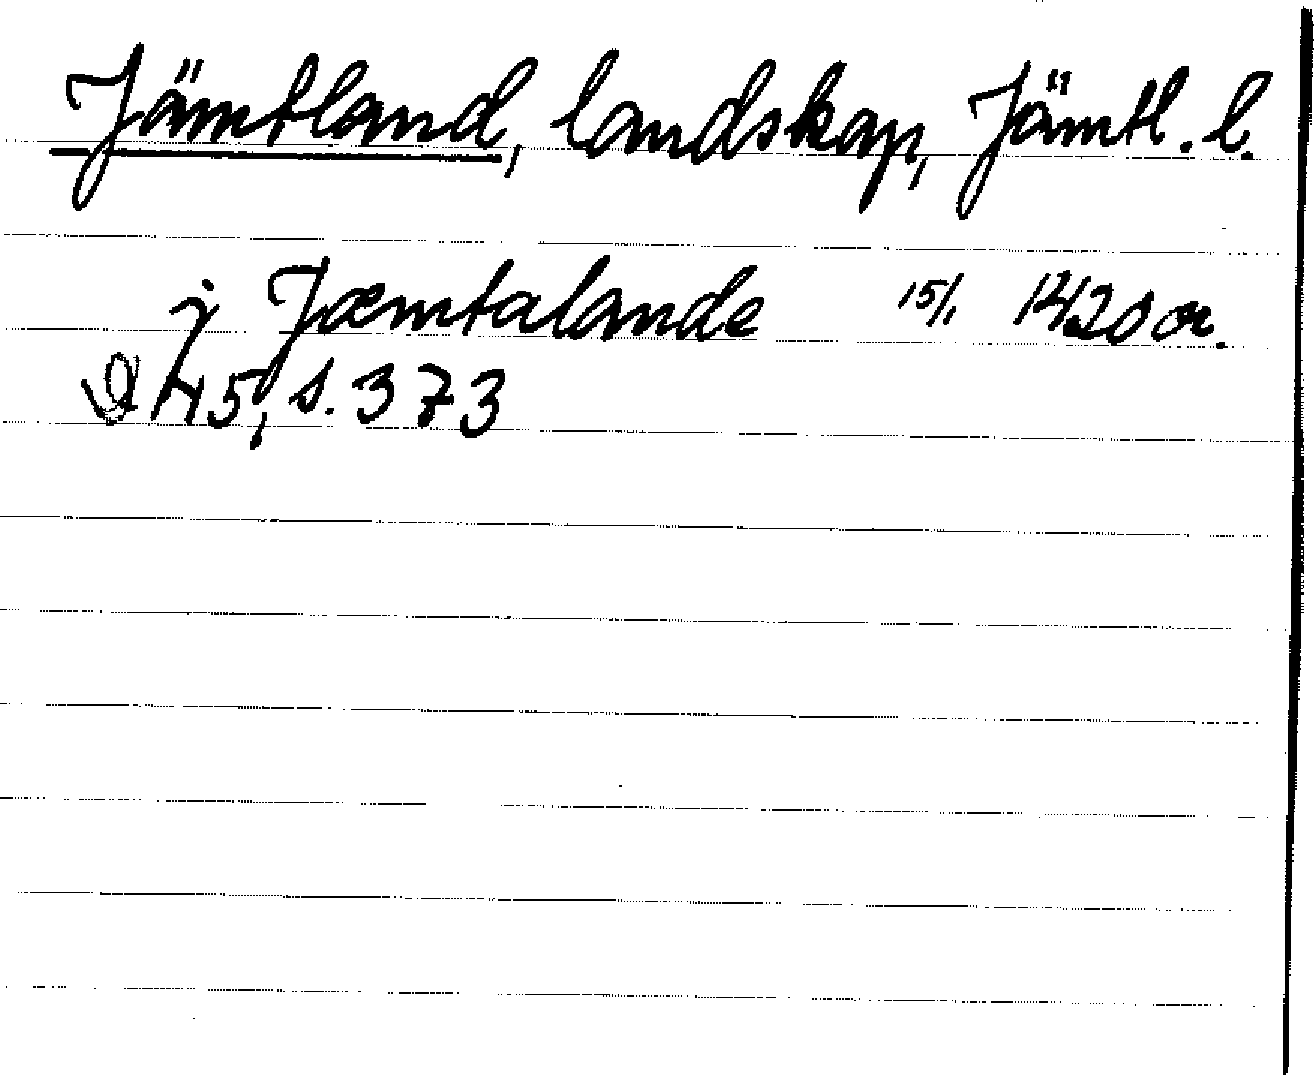 Jämtland, landskap, Jämtl. l.
j Jæmtalande 15/1 1420 or.
A 45, s. 373